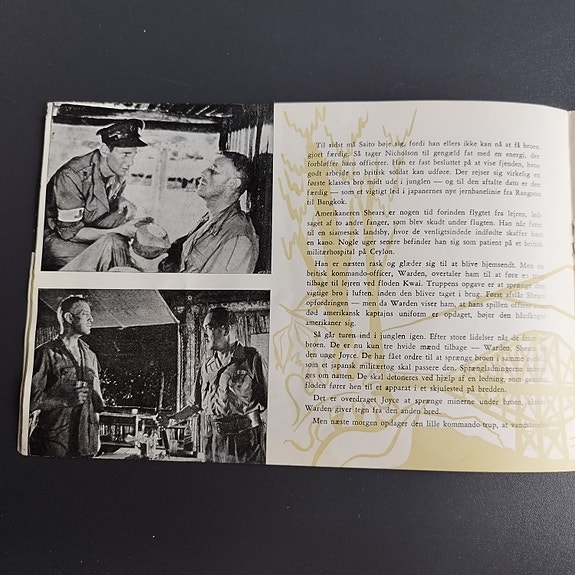 Til sidst må Saito bøje sig, fordi han ellers ikke kan nå at få broen
gjort færdig. Så tager Nicholson til gengæld fat med en energi, der
forbløffer hans officerer. Han er fast besluttet på at vise fjenden, hvor
godt arbejde en britisk soldat kan udføre. Der rejser sig virkelig en
første klasses bro midt ude i junglen — og til den aftalte dato er den
færdig — som et vigtigt led i japanernes nye jernbanelinie fra Rangoon
til Bangkok.
Amerikaneren Shears er nogen tid forinden flygtet fra lejren, led-
saget af to andre fanger, som blev skudt under flugten. Han når frem
til en siamesisk landsby, hvor de venligtsindede indfødte skaffer ham
en kano. Nogle uger senere befinder han sig som patient på et britisk
militærhospital på Ceylon.
Han er næsten rask og glæder sig til at blive hjemsendt. Men
britisk kommando-officer, Warden, overtaler ham til at føre en
tilbage til lejren ved floden Kwai. Truppens opgave er at sprænge den
vigtige bro i luften, inden den bliver taget i brug. Først afslår Shears
opfordringen — men da Warden viser ham, at hans spillen
død amerikansk kaptajns uniform er opdaget, bøjer den hårdkogte
amerikaner sig.
Så går turen ind i junglen igen. Efter store lidelser når de frem
broen. De er nu kun tre hvide mænd tilbage — Warden, Shears og
den unge Joyce. De har fået ordre til at sprænge broen i samme
som et japansk militærtog skal passere den. Sprængladningerne
ges om natten. De skal detoneres ved hjælp af en ledning, som gennem
floden fører hen til et apparat i et skjulested på bredden.
Det er overdraget Joyce at sprænge minerne under broen,
Warden giver tegn fra den anden bred.
Men næste morgen opdager den lille kommando-trup, at